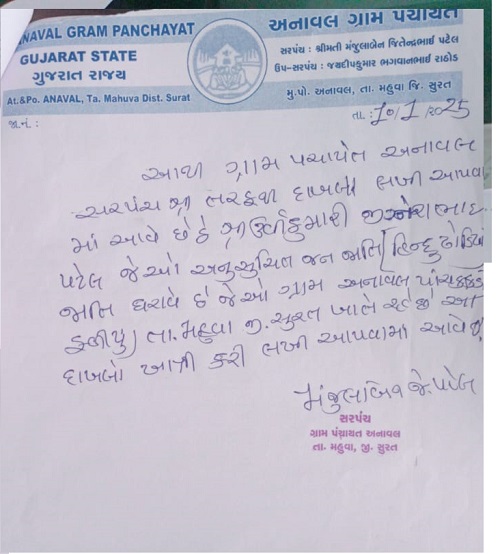 ANAVAL GRAM PANCHAYAT
GUJARAT STATE
ગુજરાત રાજ્ય
At.&Po. ANAVAL, Ta. Mahuva Dist. Surat
અનાવલ ગ્રામ પંચાયત
સરપંચ : શ્રીમતી મંજુલાબેન જિતેન્દ્રભાઈ પટેલ
ઉપ-સરપંચ : જયદીપકુમાર ભગવાનભાઈ રાઠોડ
મુ.પો. અનાવલ, તા. મહુવા જિ. સુરત
જા.નં. :
તા. : 10/1/2025
આથી ગ્રામ પંચાયેત અનાવલ
સરપંચ શ્રી તરફથી દાખલો લખી આપવા
માં આવે છે કે શ્રી
પટેલ જેઓ અનુસુચિત જન જાતિ (હિન્દુ ઢોડિયા
જાતિ ધરાવે છે જેઓ ગ્રામ અનાવલ
ફળીયુ) તા. મહુવા જી. સુરત ખાતે રહે છે આ
દાખલો ખાત્રી કરી લખી આપવામાં આવે છે
મંજુલાબેન જે. પટેલ
સરપંચ
ગ્રામ પંચાયત અનાવલ
તા. મહુવા, જી. સુરત